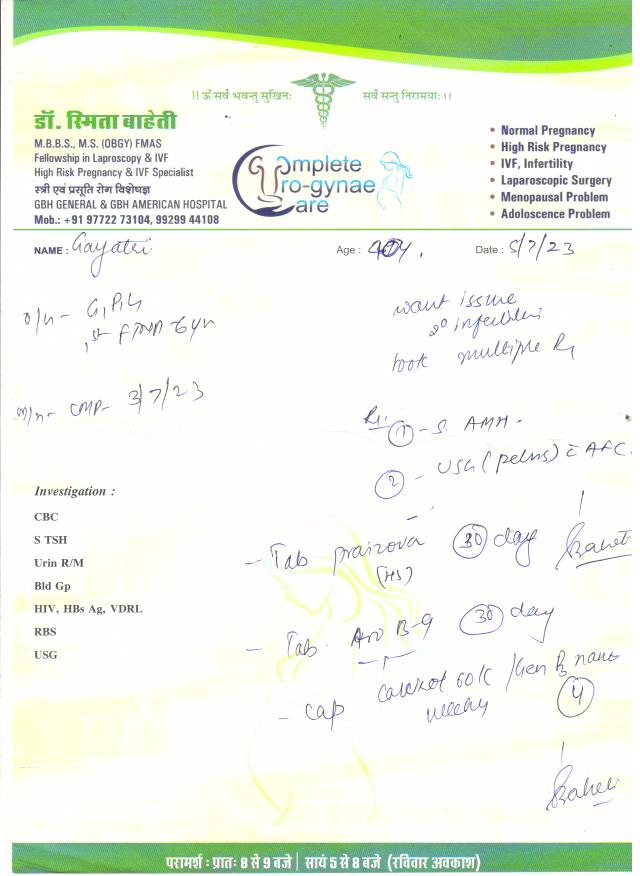 !! ॐ सर्वे भवन्तु सुखिनः सर्वे सन्तु निरामयाः ।।
डॉ. स्मिता बाहेती
M.B.B.S., M.S. (OBGY) FMAS
Fellowship in Laproscopy & IVF
High Risk Pregnancy & IVF Specialist
स्त्री एवं प्रसूति रोग विशेषज्ञ
GBH GENERAL & GBH AMERICAN HOSPITAL
Mob.: +91 97722 73104, 99299 44108
Complete
Uro-gynae
Care
• Normal Pregnancy
• High Risk Pregnancy
• IVF, Infertility
• Laparoscopic Surgery
• Menopausal Problem
• Adoloscence Problem
NAME : Gayatri Age : 40y. Date : 5/7/23
want issue
2° infertility
took multiple Rx
1st FTND 6yr
LMP- 3/7/23
Rx.
① - S. AMH -
② - USG (pelvis) c̄ AFC.
Investigation :
CBC
S TSH
Urin R/M
Bld Gp
HIV, HBs Ag, VDRL
RBS
USG
- Tab (HS) 30 day
Baheti
- Tab. 30 day
- Cap 60K / Gen D3 nano
weekly 4
Baheti
परामर्श : प्रातः 8 से 9 बजे | सायं 5 से 8 बजे (रविवार अवकाश)